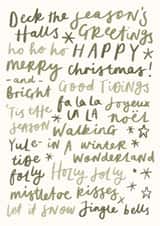 Deck the season's
Halls Greetings
ho ho ho HAPPY
merry christmas!
-and- Good Tidings
Bright
fa la la Joyeux
'Tis the LA LA noël
SEASON Walking
Yule- in a winter
tide wonderland
folly Holly Jolly
mistletoe kisses
let it snow Jingle bells